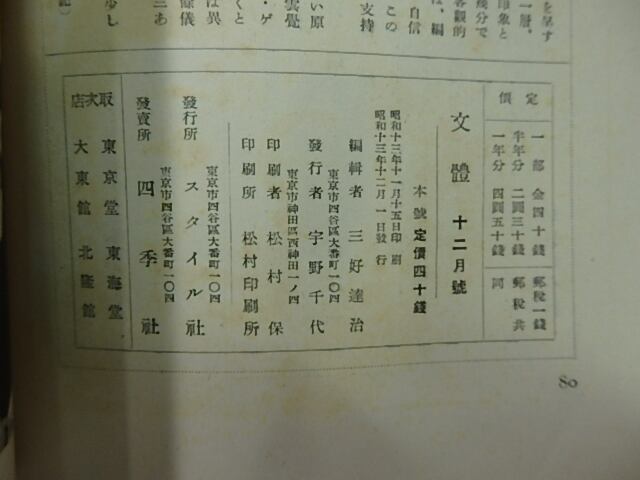 を呈す
一層、
印象と
幾分で
客觀的
は、編
自信
この
支持
い原
雲覺
・ゲ
くと
は異
餘儀
三あ
少し
定價
一部 金四十錢 郵稅一錢
半年分 二圓三十錢 郵稅共
一年分 四圓五十錢 同
文體 十二月號
本號定價四十錢
昭和十三年十一月十五日印刷
昭和十三年十二月一日發行
編輯者 三好達治
東京市四谷區大番町一〇四
發行者 宇野千代
東京市神田區西神田一ノ四
印刷者 松村保
印刷所 松村印刷所
東京市四谷區大番町一〇四
發行所 スタイル社
東京市四谷區大番町一〇四
發賣所 四季社
取次店 東京堂 東海堂
大東館 北隆館
80